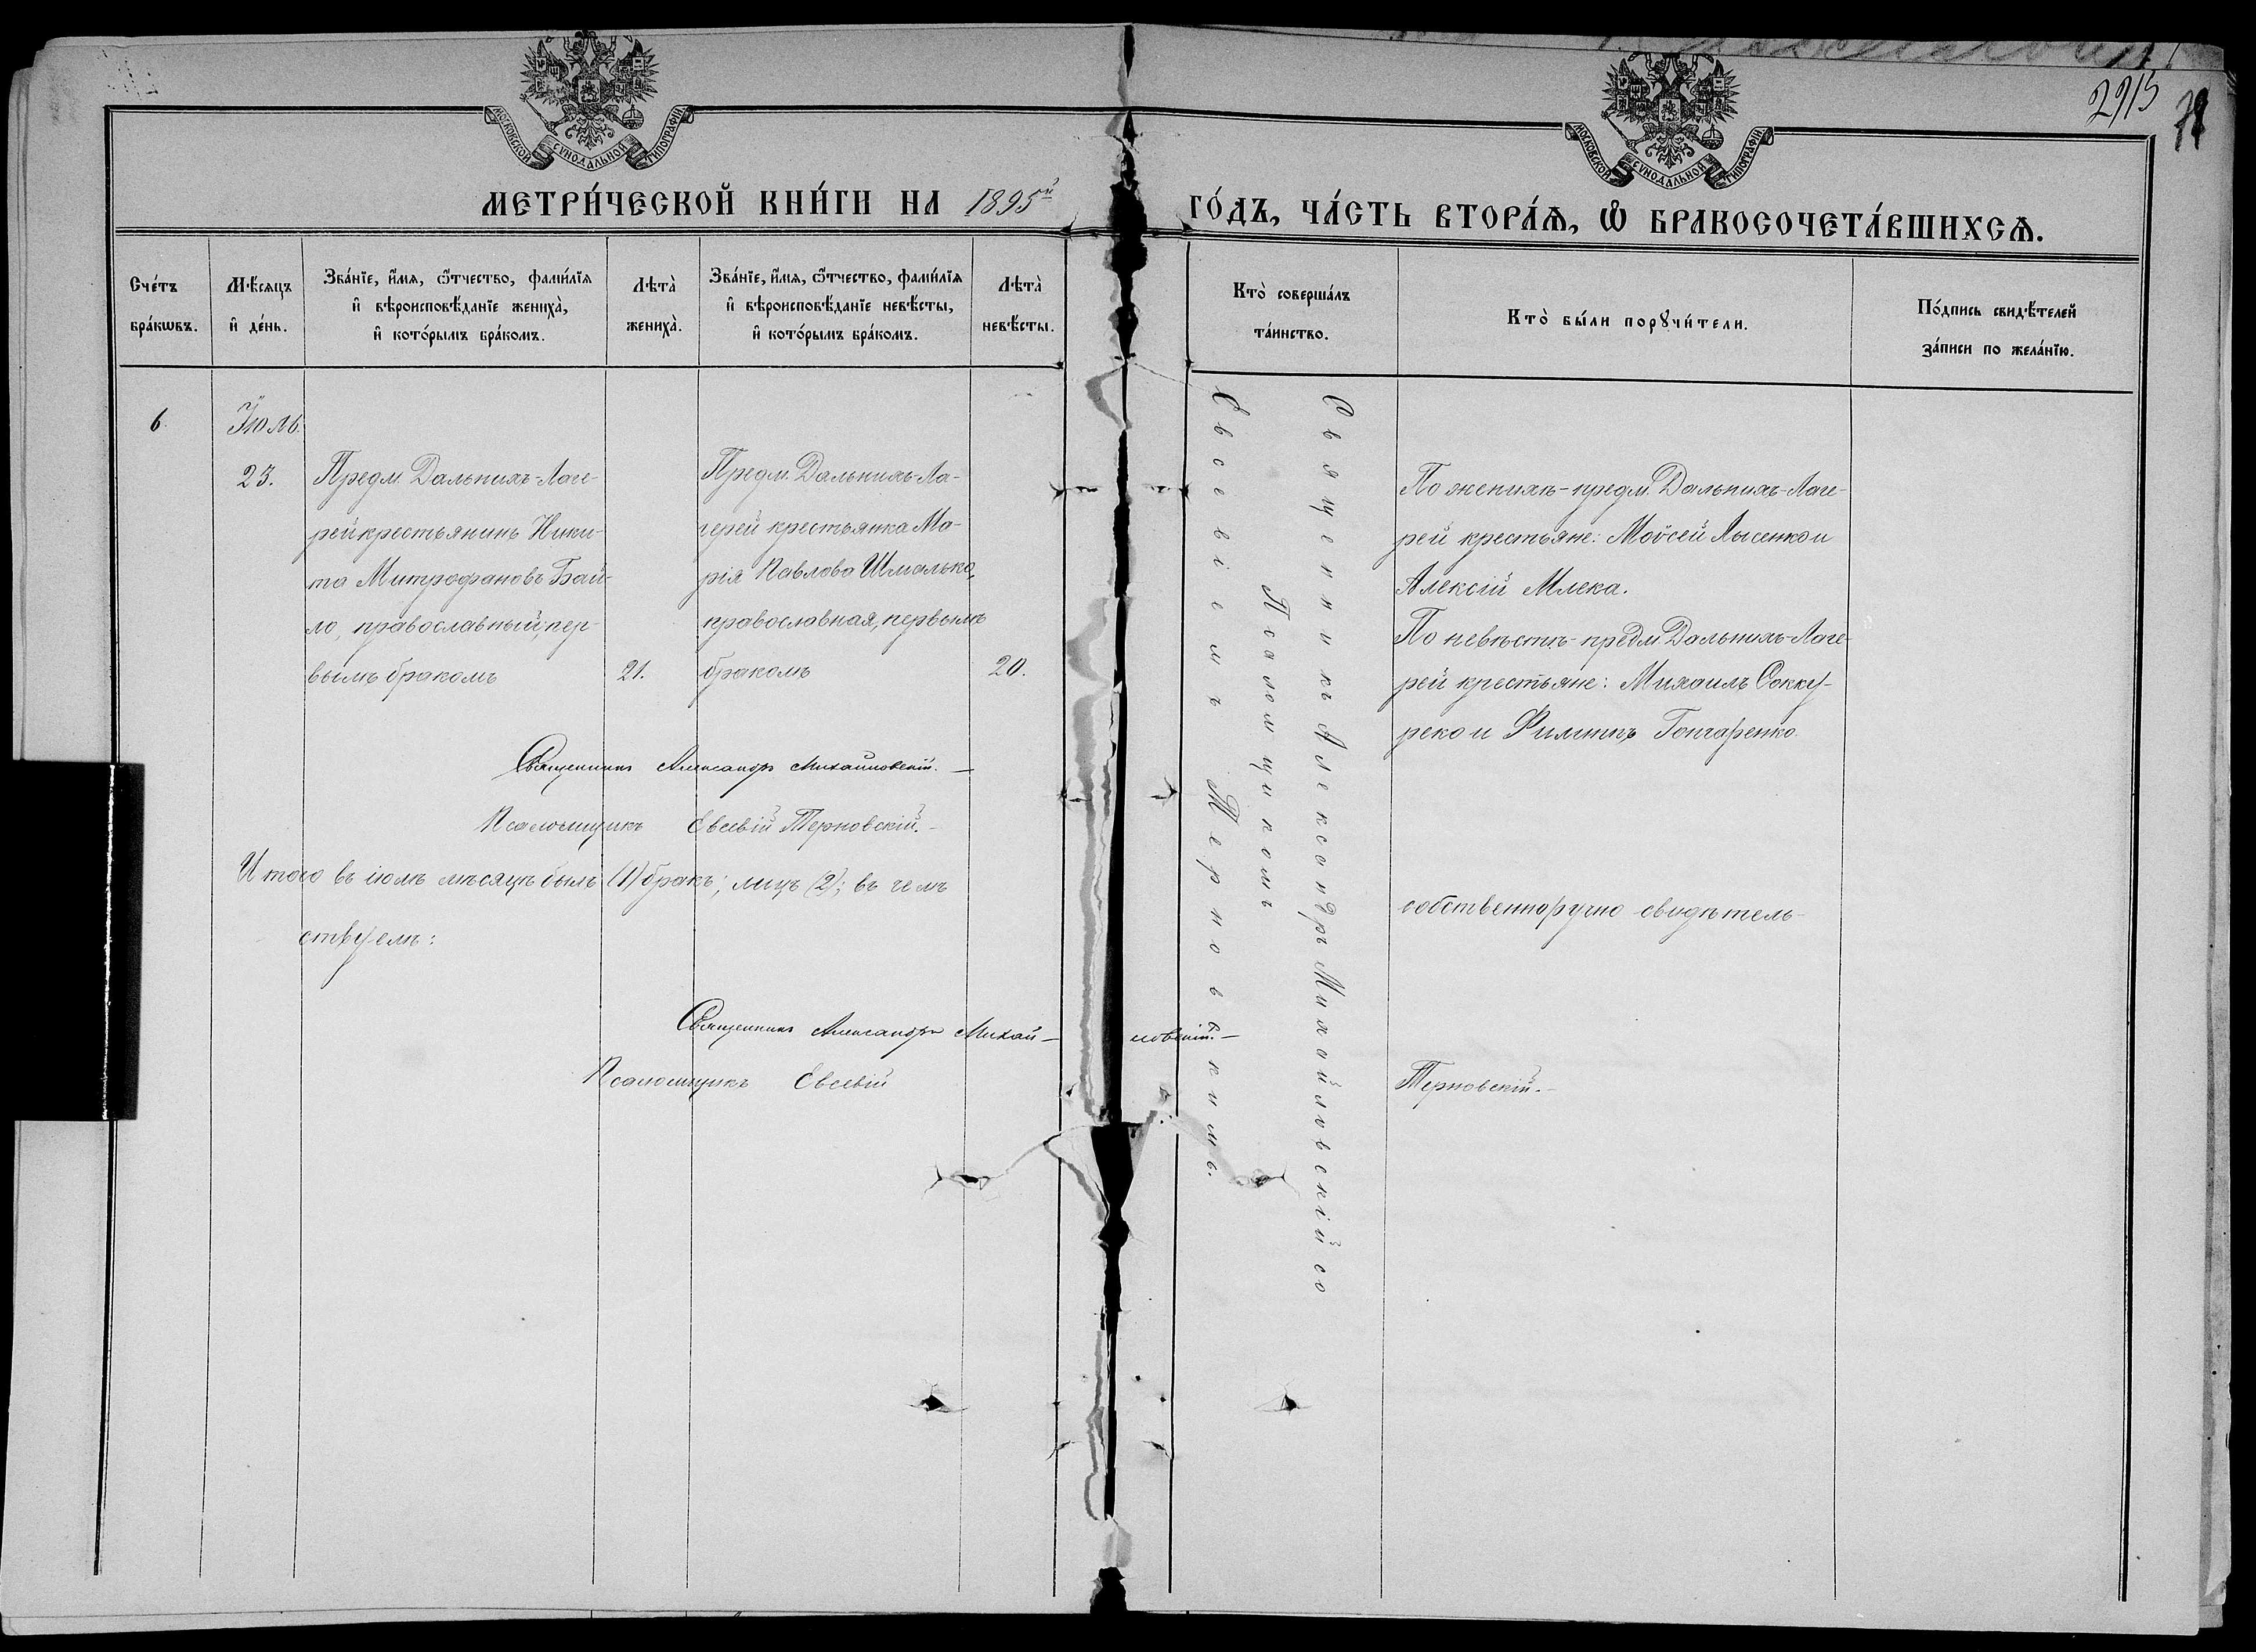 МОСКОВСКОЙ СѴНОДАЛЬНОЙ ТИПОГРАФІИ
МОСКОВСКОЙ СѴНОДАЛЬНОЙ ТИПОГРАФІИ
2915
МЕТРИ́ЧЕСКОЙ КНИ́ГИ НА 1895й
ГО́ДЪ, ЧА́СТЬ ВТОРА́Ѧ, Ѡ БРАКОСОЧЕТА́ВШИХСѦ.
Сче́тъ
бра́кωвъ.
Мѣ́сяцъ
и҆ де́нь.
Зва́нїе, и҆́мѧ, ѻ҆́тчество, фами́лїѧ
и҆ вѣроисповѣ́данїе жениха̀,
и҆ кото́рымъ бра́комъ.
Лѣта̀
жениха̀.
Зва́нїе, и҆́мѧ, ѻ҆́тчество, фами́лїѧ
и҆ вѣроисповѣ́данїе невѣ́сты,
и҆ кото́рымъ бра́комъ.
Лѣта̀
невѣ́сты.
Кто̀ соверша́лъ
та́инство.
Кто̀ бы́ли порꙋчи́тели.
По́дпись свидѣ́телей
за́писи по жела́нїю.
6.
Іюль.
23.
Предм. Дальнихъ-Лаге-
рей крестьянинъ Ники-
та Митрофановъ Бай-
ло, православный, пер-
вымъ бракомъ
21.
Предм. Дальнихъ-Ла-
герей крестьянка Ма-
рія Павлова Шмалько,
православная, первымъ
бракомъ
20.
Священникъ Александръ Михайловскій со
Псаломщикомъ
Евсевіемъ Терновскимъ.
По женихѣ - предм. Дальнихъ-Лаге-
рей крестьяне: Моѵсей Лысенко и
Алексій Млека.
По невѣстѣ - предм. Дальнихъ-Лаге-
рей крестьяне: Михаилъ Сокку-
реко и Филиппъ Гончаренко.
Священникъ Александръ Михайловскій. —
Псаломщикъ Евсевій Терновскій. -
Итого въ іюлѣ мѣсяцѣ былъ (1) бракъ; лицъ (2); въ чемъ
собственноручно свидѣтель-
ствуемъ:
Священникъ Александръ Михай- ловскій. —
Псаломщикъ Евсевій Терновскій. -